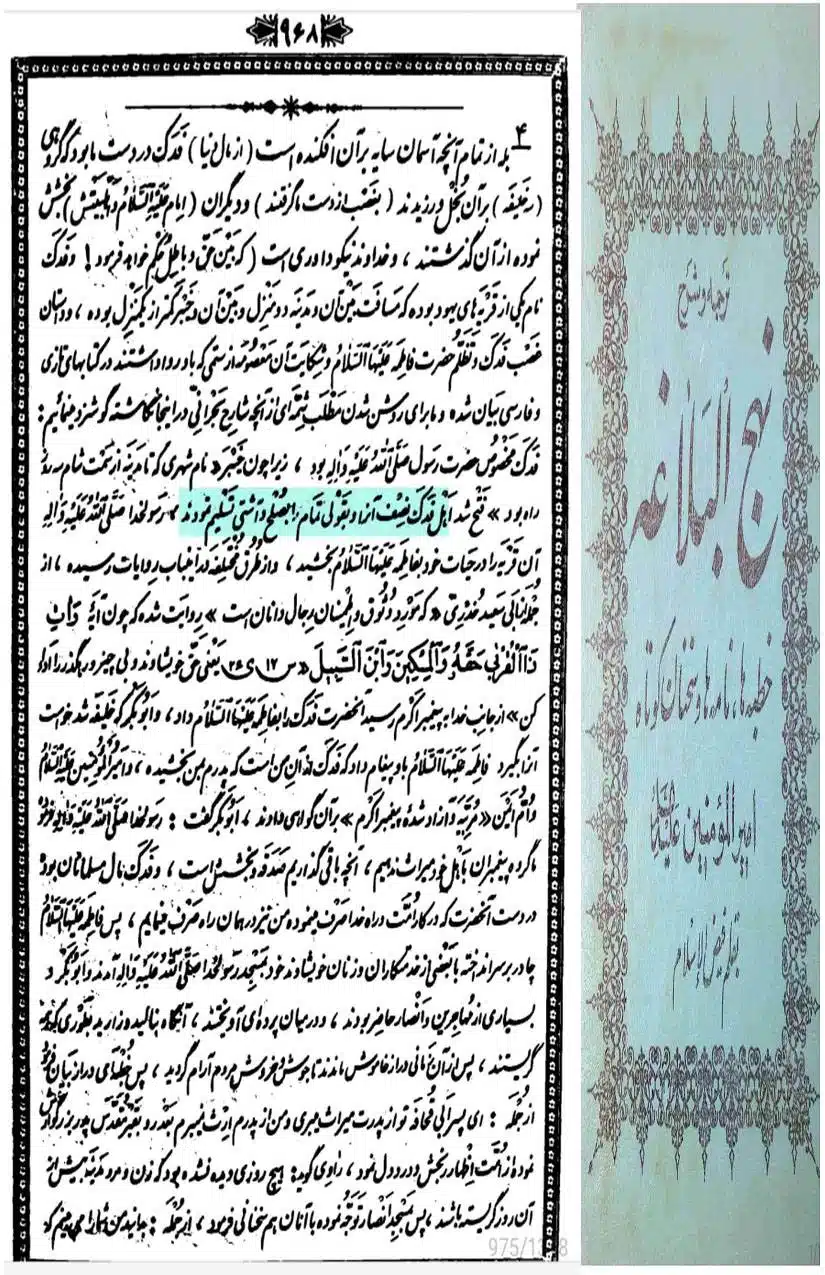 ۹۶۸
۴ بله از تمام آنچه آسمان سایه بر آن افکنده است (از مال دنیا) فدک در دست ما بود که گروهی
(سه خلیفه) بر آن بخل ورزیدند (بغصب از دست ما گرفتند) و دیگران (امام عَلَیْهِ السَّلامُ و اهلبیتش) بخشش
نموده از آن گذشتند ، و خداوند نیکو داوری است (که بین حق و باطل حکم خواهد فرمود ! و فدک
نام یکی از قریه های یهود بوده که مسافت بین آن و مدینه دو منزل و بین آن و خیبر کمتر از یکمنزل بوده ، و داستان
غصب فدک و تظلم حضرت فاطمه عَلَیْهَا السَّلامُ و شکایت آن معصومه از ستمی که باو روا داشتند در کتابهای تازی
و فارسی بیان شده و ما برای روشن شدن مطلب شمه ای از آنچه شارح بحرانی در اینجا نگاشته گوشزد مینمائیم :
فدک مخصوص حضرت رسول صَلَّی اللهُ عَلَیْهِ وَ الِهِ بود ، زیرا چون خیبر «نام شهری که تا مدینه از سمت شام سه روز
راه بود» فتح شد اهل فدک نصف آنرا و بقولی تمام را بصلح و آشتی تسلیم نمودند ، رسولخدا صَلَّی اللهُ عَلَیْهِ وَ الِهِ
آن قریه را در حیات خود بفاطمه عَلَیْهَا السَّلامُ بخشید ، و از طرق مختلفه در اینباب روایات رسیده ، از
جمله از ابی سعید خدری «که مورد وثوق و اطمینان رجال دانان است» روایت شده که چون آیۀ وَ اتِ
ذَا الْقُرْبی حَقَّهُ وَ الْمِسْکینَ وَ ابْنَ السَّبیلَ «س ۱۷ ی ۲۶ یعنی حق خویشاوند و بی چیز و رهگذر را ادا
کن» از جانب خدا به پیغمبر اکرم رسید آنحضرت فدک را بفاطمه عَلَیْهَا السَّلامُ داد ، و ابوبکر که خلیفه شد خواست
آنرا بگیرد فاطمه عَلَیْهَا السَّلامُ باو پیغام داد که فدک از آن من است که پدرم بمن بخشیده ، و امیرالمؤمنین عَلَیْهِ السَّلامُ
و ام ایمن «مربیه و آزاد شدۀ پیغمبر اکرم» بر آن گواهی دادند ، ابوبکر گفت : رسولخدا صَلَّی اللهُ عَلَیْهِ وَ الِهِ فرموده
ما گروه پیغمبران باهل خود میراث ندهیم ، آنچه باقی گذاریم صدقه و بخشش است ، و فدک مال مسلمانان بود
در دست آنحضرت که در کار امت و راه خدا صرف مینموده من نیز در همان راه صرف مینمایم ، پس فاطمه عَلَیْهَا السَّلامُ
چادر بر سر انداخته با بعضی از خدمتکاران و زنان خویشاوند خود بمسجد رسولخدا صَلَّی اللهُ عَلَیْهِ وَ الِهِ آمدند و ابوبکر و
بسیاری از مهاجرین و انصار حاضر بودند ، و در میان پرده ای آویختند ، آنگاه بنالید زار به طوری که همه
گریستند ، پس از آن زمانی دراز خاموش ماندند تا جوش و خروش مردم آرام گردید ، پس خطبه ای دراز بیان فرمود
از جمله : ای پسر ابی قحافه تو از پدرت میراث میبری و من از پدرم ارث نمیبرم بعد رو بقبر مقدس پدر بزرگوارش
نموده از امت اظهار رنجش و درد دل نمود ، راوی گوید : هیچ روزی دیده نشده بود که زن و مرد مدینه بیش از
آن روز گریسته باشند ، پس بمسجد انصار توجه نموده با آنان هم سخنانی فرمود ، از جمله : چه شما را می بینم که
975/1318
ترجمه و شرح
نهج البلاغه
خطبه ها، نامه ها و سخنان کوتاه
امیرالمؤمنین علیه السلام
بقلم فیض الاسلام